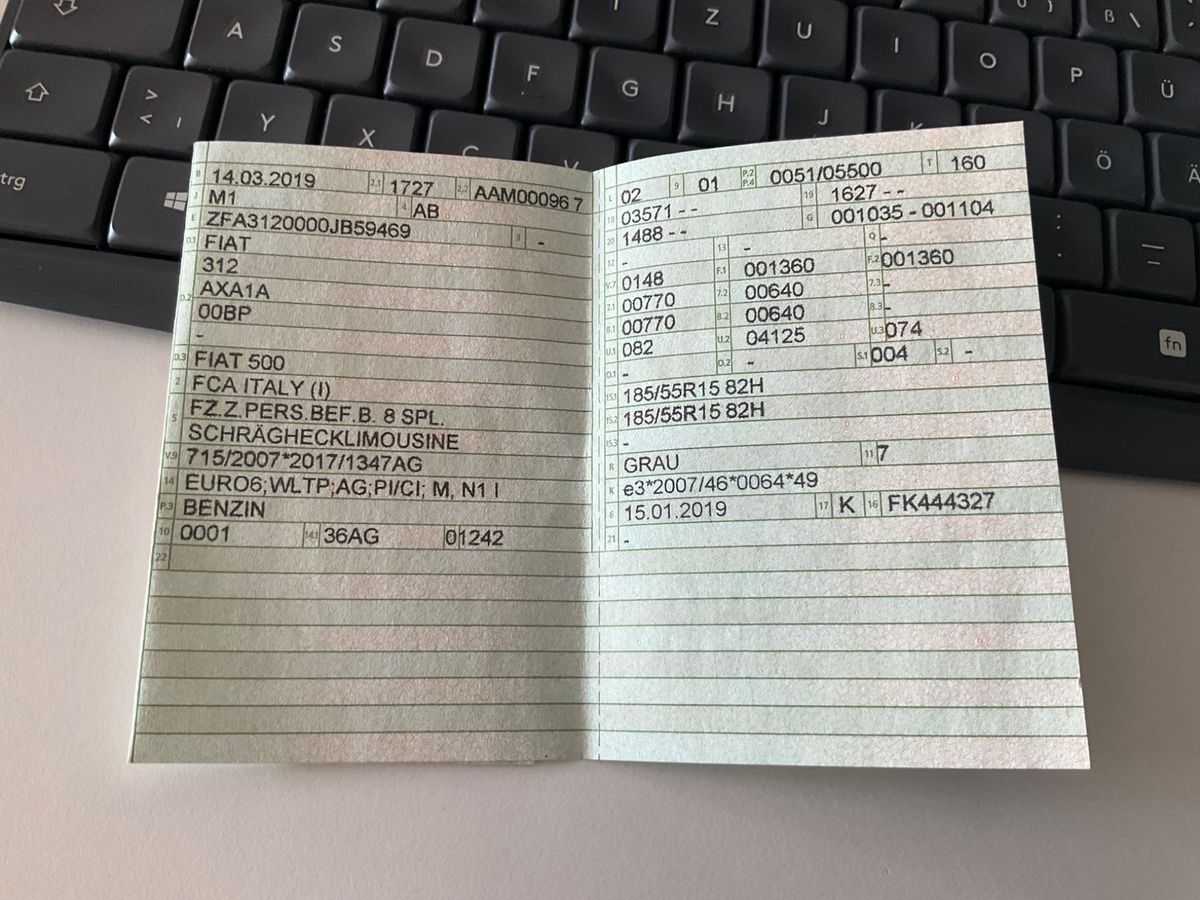 Z U
A S D F G H J I O P Ü
Y X Ö Ä
> < |
trg
ß \
fn
B 14.03.2019 2.1 1727 2.2 AAM00096 7
J M1 4 AB
E ZFA3120000JB59469 3 -
D.1 FIAT
312
D.2 AXA1A
00BP
-
D.3 FIAT 500
2 FCA ITALY (I)
5 FZ.Z.PERS.BEF.B. 8 SPL.
SCHRÄGHECKLIMOUSINE
V.9 715/2007*2017/1347AG
14 EURO6;WLTP;AG;PI/CI; M, N1 I
P.3 BENZIN
10 0001 14.1 36AG 01242
22
L 02 9 01 P.2 P.4 0051/05500 T 160
18 03571 - - 19 1627 - -
20 1488 - - G 001035 - 001104
12 - 13 - Q -
V.7 0148 F.1 001360 F.2 001360
7.1 00770 7.2 00640 7.3 -
8.1 00770 8.2 00640 8.3 -
U.1 082 U.2 04125 U.3 074
O.1 - O.2 - S.1 004 S.2 -
15.1 185/55R15 82H
15.2 185/55R15 82H
15.3 -
R GRAU 11 7
K e3*2007/46*0064*49
6 15.01.2019 17 K 16 FK444327
21 -